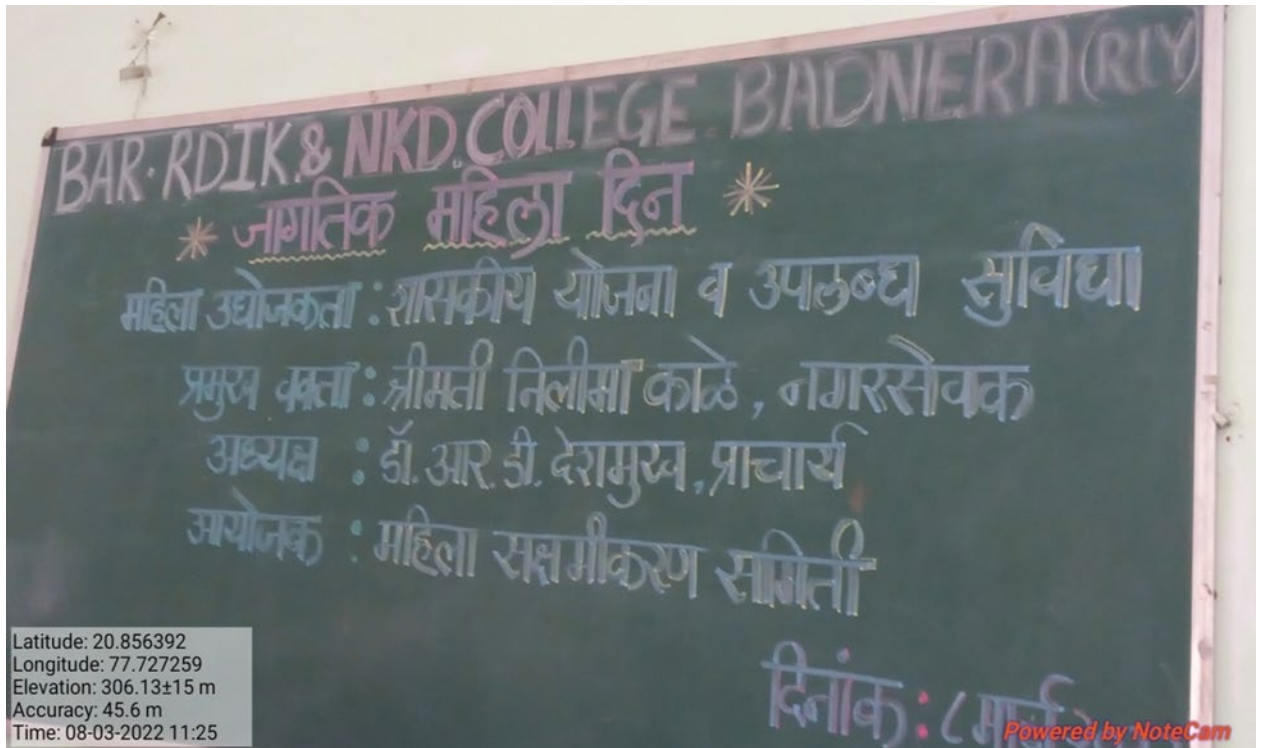 BAR. RDIK. & NKD. COllEGE. BADNERA (RLY)
* जागतिक महिला दिन *
महिला उद्योजकता : शासकीय योजना व उपलब्ध सुविधा
प्रमुख वक्ता : श्रीमती निलीमा काळे, नगरसेवक
अध्यक्ष : डॉ. आर. डी. देशमुख, प्राचार्य
आयोजक : महिला सक्षमीकरण समिती
दिनांक : ८ मार्च
Latitude: 20.856392
Longitude: 77.727259
Elevation: 306.13±15 m
Accuracy: 45.6 m
Time: 08-03-2022 11:25
Powered by NoteCam